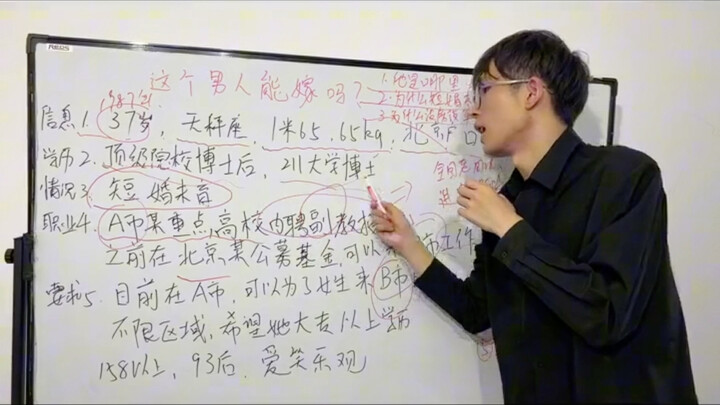 这个男人能嫁吗?
1987年
信息1. 37岁, 天秤座, 1米65, 65kg, 北京户口
学历2. 顶级院校博士后, 211大学博士
情况3. 短婚未育
职业4. A市某重点高校内聘副教授
之前在北京某公募基金, 可以来B市工作
要求5. 目前在A市, 可以为了女生来B市
不限区域, 希望她大专以上学历
158以上, 93后, 爱笑乐观
1. 他是哪里
2. 为什么短婚
3. 为什么没